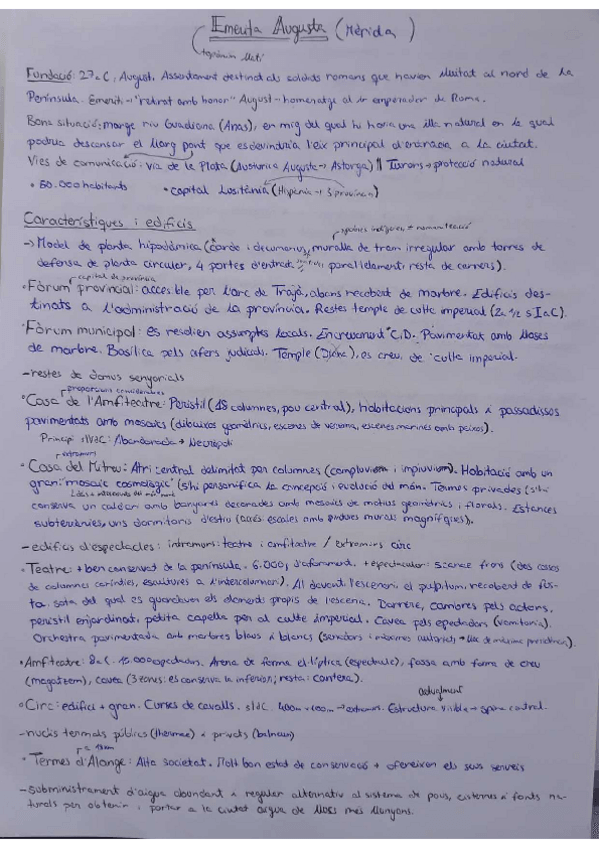 Emerita Augusta (Mèrida)
Fundació: 27 aC, August. Assentament destinat als soldats romans que havien lluitat al nord de la
Península. Emeriti → "retirat amb honor" August → homenatge al 1r emperador de Roma.
Bona situació: marge riu Guadiana (Anas), en mig del qual hi havia una illa natural en la qual
podria descansar el llarg pont que esdevindria l'eix principal d'entrada a la ciutat.
Vies de comunicació: via de la Plata (Austurica Augusta → Astorga) || Turons → protecció natural
• 50.000 habitants • capital Lusitània (Hispània → 3 províncies)
Característiques i edificis
→ Model de planta hipodàmica (cardo i decumanus, muralla de tram irregular amb torres de
defensa de planta circular, 4 portes d'entrada, paral·lelament: resta de carrers).
capital de província
• Fòrum provincial: accessible per l'arc de Trajà, abans recobert de marbre. Edificis des-
tinats a l'administració de la província. Restes temple de culte imperial (2a 1/2 s I aC).
• Fòrum municipal: es resolien assumptes locals. Encreuament C.D. Pavimentat amb lloses
de marbre. Basílica pels afers judicials. Temple (Diana), es creu, de culte imperial.
- restes de domus senyorials
proporcions considerables
• Casa de l'Amfiteatre: Peristil (15 columnes, pou central), habitacions principals i passadissos
pavimentats amb mosaics (dibuixos geomètrics, escenes de verema, escenes marines amb peixos).
Principi sIVdC: Abandonada → Necròpoli
extramurs
• Casa del Mitreu: Atri central delimitat per columnes (compluvium i impluvium). Habitació amb un
gran "mosaic cosmològic" (s'hi personifica la concepció i evolució del món. Termes privades (s'hi
conserva un caldari amb banyeres decorades amb mosaics de motius geomètrics i florals. Estances
subterrànies, uns dormitoris d'estiu (accés: escales amb pintures murals magnífiques).
- edificis d'espectacles: intramurs: teatre i amfiteatre / extramurs: circ
• Teatre: + ben conservat de la península. 6.000 d'aforament. + espectacular: scaenae frons (dos cossos
de columnes corínties, escultures a l'intercolumni). Al davant, l'escenari, el pulpitum, recobert de fus-
ta, sota del qual es guardaven els elements propis de l'escena. Darrere, cambres pels actors,
peristil enjardinat, petita capella per al culte imperial. Cavea pels espectadors (vomitoria).
Orchestra pavimentada amb marbres blaus i blancs (senadors i màximes autoritats → lloc de màxima presidència).
• Amfiteatre: 8 aC. 15.000 espectadors. Arena de forma el·líptica (espectacle), fossa amb forma de creu
(magatzem), cavea (3 zones: es conserva la inferior; resta: cantera).
actualment
• Circ: edifici + gran. Curses de cavalls. sIdC. 400m × 100m → extramurs. Estructura visible → spina central.
- nuclis termals públics (thermae) i privats (balneum)
18km
• Termes d'Alange: Alta societat. Molt bon estat de conservació + ofereixen els seus serveis
- subministrament d'aigua abundant i regular alternatiu al sistema de pous, cisternes i fonts na-
turals per obtenir i portar a la ciutat aigua de llocs més llunyans.